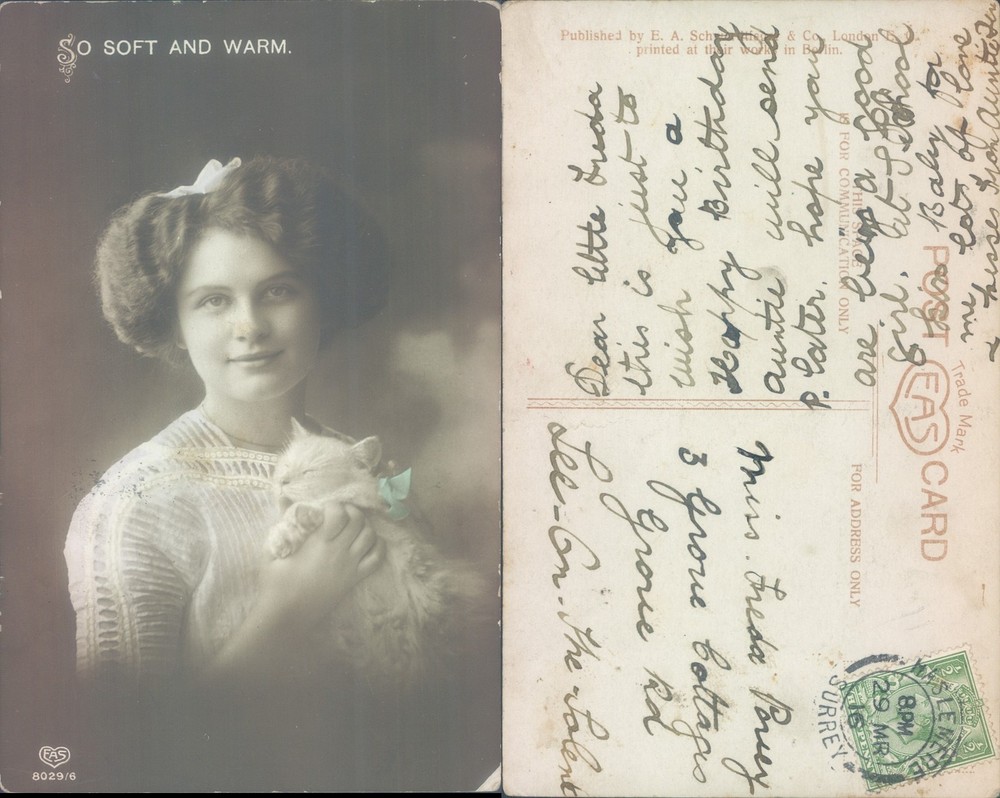 SO SOFT AND WARM.
EAS
8029/6
Published by E. A. & Co., London E. C.
printed at their works in Berlin.
POST CARD
EAS
Trade Mark
THIS SPACE
IS FOR COMMUNICATION ONLY
FOR ADDRESS ONLY
Dear little Freda
this is just to
wish you a
Happy Birthday
Auntie will send
P. Later. hope you
are being a Good
Girl. at School
Baby for
me Lots of Love
& kisses from Auntie
Miss. Freda
3 Grove Cottages
Grove Rd
Lee-On-The-Solent
HASLEMERE
8 PM
29 MR
16
SURREY